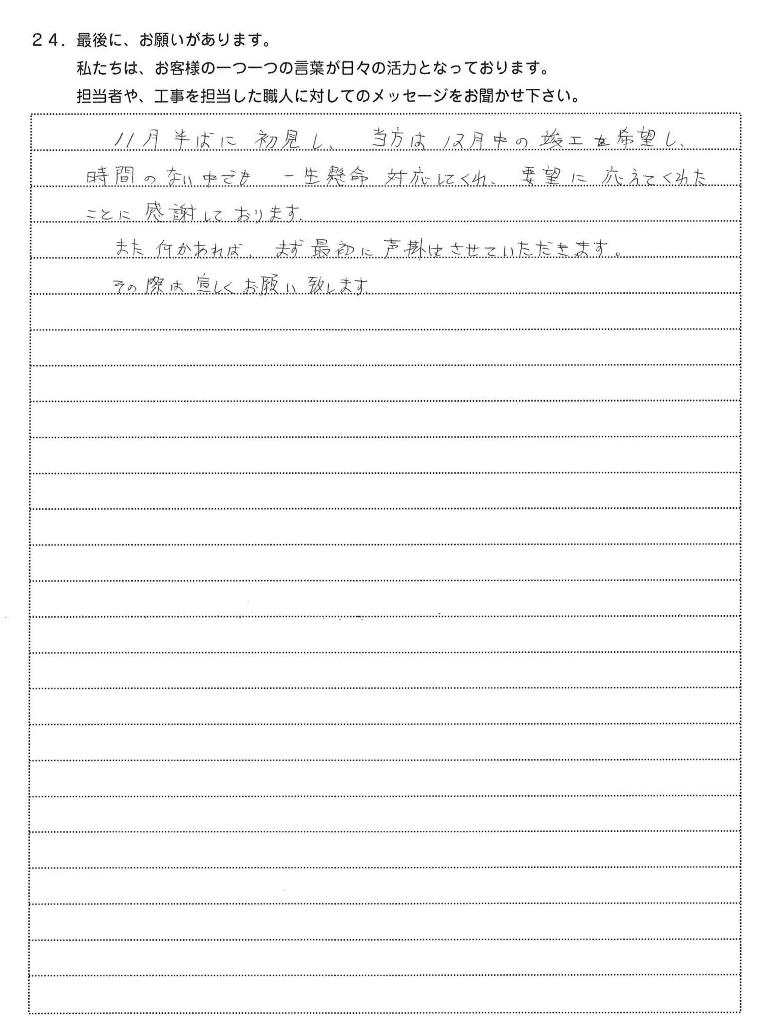 24. 最後に、お願いがあります。
私たちは、お客様の一つ一つの言葉が日々の活力となっております。
担当者や、工事を担当した職人に対してのメッセージをお聞かせ下さい。
11月半ばに初見し、当方は12月中の竣工を希望し、
時間のない中でも一生懸命対応してくれ、要望に応えてくれた
ことに感謝しております。
また何かあれば、まず最初に声掛けさせていただきます。
その際は宜しくお願い致します